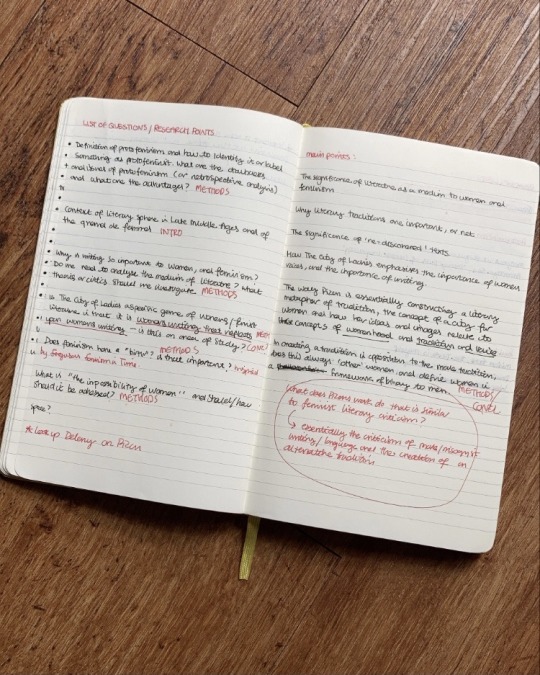 LIST OF QUESTIONS / RESEARCH POINTS
Definition of protofeminism and how to identify or label
something as protofeminist. What are the drawbacks
and of protofeminism (or retrospective analysis)
and what are the advantages? METHODS
Context of literary sphere in Late Middle Ages and of
the querelle des femmes INTRO
Why is writing so important to women, and feminism?
Do we need to analyse the medium of literature? What
theorists or critics should we investigate METHODS
Is The City of Ladies a specific genre of women's/feminist
literature is that it is women's writing that reflects
upon women's writing – is this an area of study?
Does feminism have a "time"? Is that important?
METHODS
by Frequencies Feminism Time
What is "the impossibility of women" and should/how
should it be addressed? METHODS
space?
* Look up Delany on Pizan
main points:
The significance of literature as a medium to women and
feminism
Why literary traditions are important, or not
The significance of 're-discovered' texts
How The City of Ladies emphasises the importance of women
voices, and the importance of writing
The Way Pizan is essentially constructing a literary
metaphor of tradition, the concept of a city for
women and how her ideas and images relate to
these concepts of womanhood and tradition and
In creating a tradition in opposition to the male tradition,
does this always 'other' women and define women in
a framework of binary to men. METHODS/
CONCL
What does Pizans work do that is similar
to feminist literary criticism?
↳ essentially the criticism of male/misogynist
writing/language and the creation of an
alternative tradition